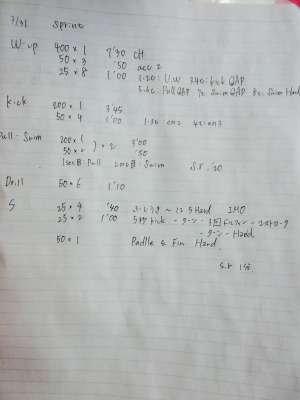 7/31 Sprint
W-up 400×1 7'30 CH
50×3 '50 acc 2
25×8 1'00 1.2o: U.W 3.4o: kick QAP
5.6o: Pull QAP 7o: Swim QAP 8o: Swim Hard
Kick 200×1 3'45
50×4 1'00 1-3o: en2 4o: en3
Pull-Swim 200×1 3'00
50×2 ×2 '50
1set目: Pull 2set目: Swim S.R '20
Drill 50×6 1'10
S 25×4 '40 ~ 12.5 Hard IMO
25×2 1'00 5m kick - ターン - 3回ドルフィン - ストローク
- ターン - Hard
50×1 Paddle & Fin Hard
S.R 1分